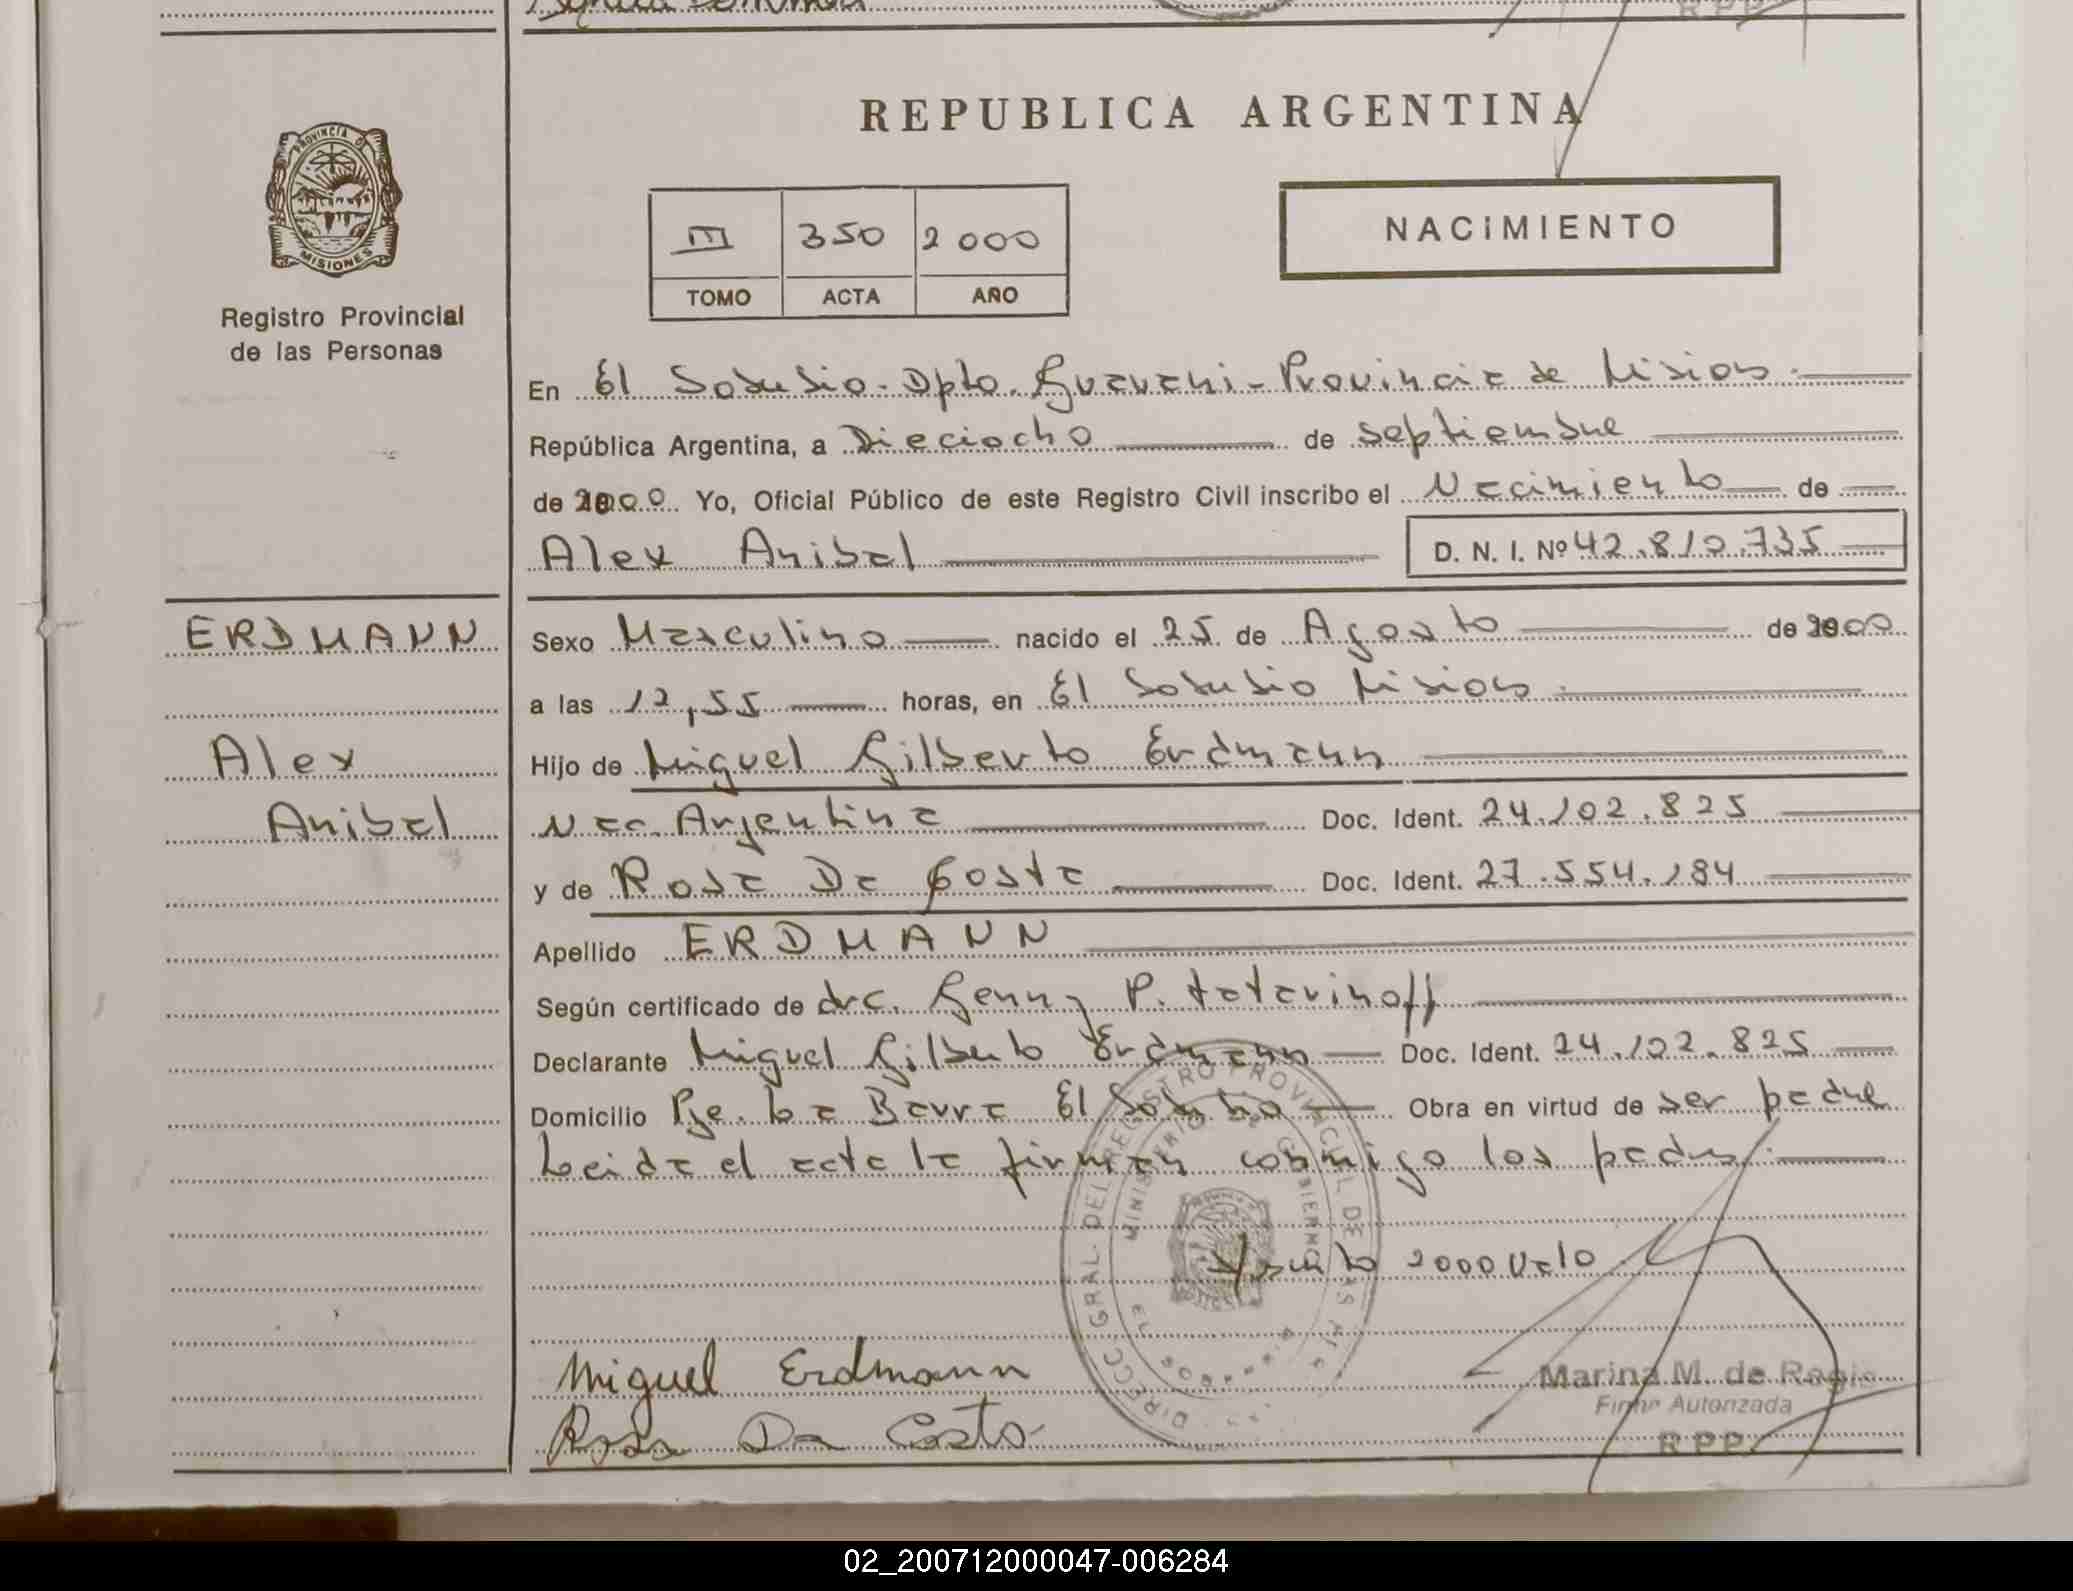 REPUBLICA ARGENTINA
PROVINCIA DE
MISIONES
Registro Provincial
de las Personas
III 350 2000
TOMO ACTA AÑO
NACIMIENTO
En El Soberbio - Dpto. Guarani - Provincia de Misiones.
República Argentina, a Dieciocho de septiembre
de 2000 Yo, Oficial Público de este Registro Civil inscribo el Nacimiento de
Alex Anibal D. N. I. Nº 42.810.735
ERDMANN
Alex
Anibal
Sexo Masculino nacido el 25 de Agosto de 2000
a las 12,55 horas, en El Soberbio Misiones.
Hijo de Miguel Gilberto Erdmann
Nac. Argentina Doc. Ident. 24.102.825
y de Rosa Da Costa Doc. Ident. 27.554.184
Apellido ERDMANN
Según certificado de dra. Genny P. tatarinoff
Declarante Miguel Gilberto Erdmann Doc. Ident. 24.102.825
Domicilio Pje. La Barra El Soberbio Obra en virtud de ser padre
Leida el acta la firman conmigo los padres.
2000 Vale
DIRECC. GRAL. DEL REGISTRO PROVINCIAL DE LAS
MINISTERIO DE GOBIERNO
Miguel Erdmann
Rosa Da Costa
Marina M. de Ragio
Firma Autorizada
R P P
02_200712000047-006284